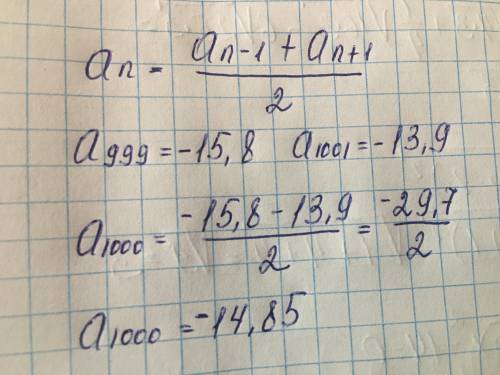 an = (an-1 + an+1) / 2
a999 = -15,8 a1001 = -13,9
a1000 = (-15,8 - 13,9) / 2 = -29,7 / 2
a1000 = -14,85